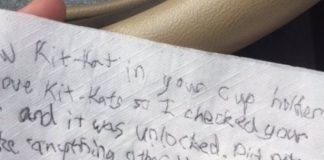 Kit-Kat in your cup holder
love Kit-Kats so I checked your
and it was unlocked. Did not
anything other